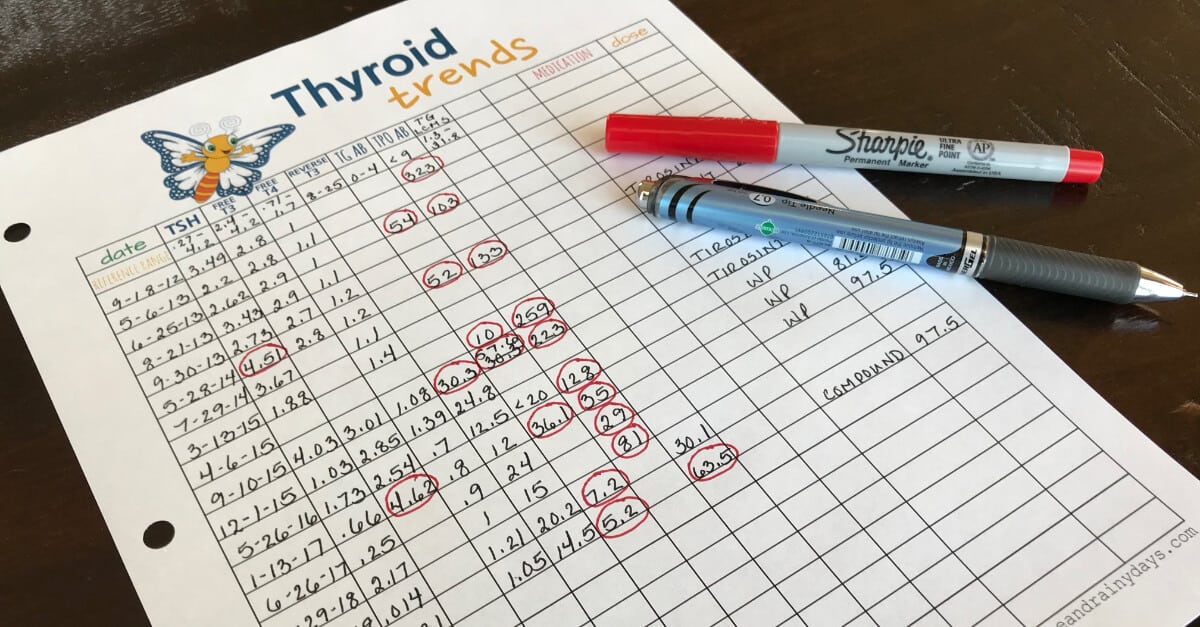 Thyroid
trends
date TSH FREE T3 FREE T4 REVERSE T3 TG AB TPO AB TG LCMS MEDICATION dose
REFERENCE RANGE .27-4.2 2.4-4.2 .71-1.7 8-25 0-4 <9 1.3-31.8
9-18-12 3.49 2.8 1 323
5-6-13 2.2 2.8 1.1 54 103
6-25-13 2.62 2.9 1
8-21-13 3.43 2.9 1.1 52 133
9-30-13 2.73 2.7 1.2
5-28-14 4.51 2.8 1.1 10 259
7-29-14 3.67 1.4 223
3-13-15 1.88 30.3
4-6-15 128
9-10-15 4.03 3.01 1.08 24.8 <20 35
12-1-15 1.03 2.85 1.39 12.5 36.1 29
5-26-16 1.73 2.54 .7 12 81
1-13-17 .66 4.62 .8 24 30.1
6-26-17 .25 .9 15 7.2 63.5
29-18 2.17 1 20.2 5.2
.014 1.21 14.5
1.05
TIROSINT
WP
WP
WP 97.5
COMPOUND 97.5
Sharpie.
Permanent Marker
ULTRA FINE POINT
AP
0.7 Needle Tip
eandrainydays.com